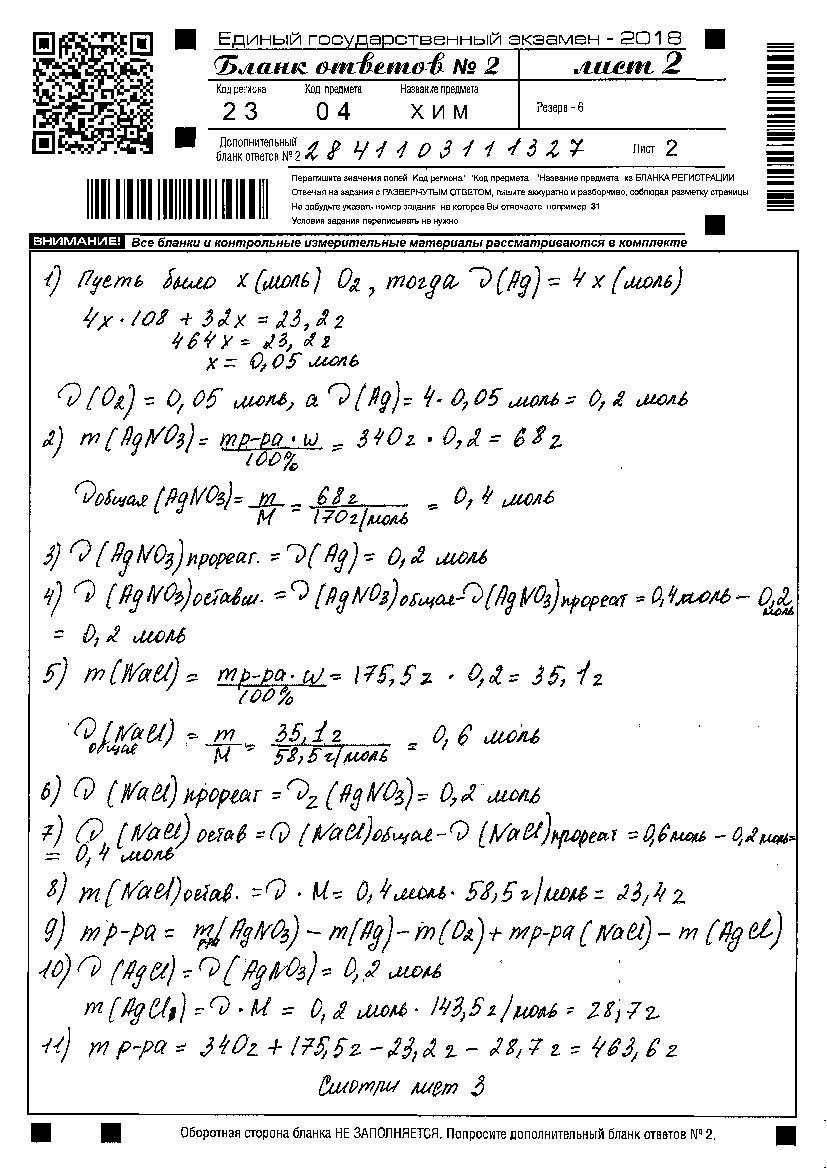 Единый государственный экзамен - 2018
Бланк ответов № 2 лист 2
Код региона Код предмета Название предмета
23 04 ХИМ Резерв - 6
Дополнительный бланк ответов № 2 2841103111327 Лист 2
Перепишите значения полей "Код региона" "Код предмета" "Название предмета" из БЛАНКА РЕГИСТРАЦИИ
Отвечая на задания с РАЗВЕРНУТЫМ ОТВЕТОМ, пишите аккуратно и разборчиво, соблюдая разметку страницы
Не забудьте указать номер задания на которое Вы отвечаете например 31
Условия задания переписывать не нужно
ВНИМАНИЕ! Все бланки и контрольные измерительные материалы рассматриваются в комплекте
1) Пусть было x (моль) O2, тогда ν(Ag) = 4x (моль)
4x · 108 + 32x = 23,2г
464x = 23,2г
x = 0,05 моль
ν(O2) = 0,05 моль, а ν(Ag) = 4 · 0,05 моль = 0,2 моль
2) m(AgNO3) = mр-ра · w / 100% = 340г · 0,2 = 68г
νобщая (AgNO3) = m / M = 68г / 170г/моль = 0,4 моль
3) ν(AgNO3)прореаг. = ν(Ag) = 0,2 моль
4) ν(AgNO3)оставш. = ν(AgNO3)общая - ν(AgNO3)прореат = 0,4 моль - 0,2 моль
= 0,2 моль
5) m(NaCl) = mр-ра · w / 100% = 175,5г · 0,2 = 35,1г
ν(NaCl) общая = m / M = 35,1г / 58,5г/моль = 0,6 моль
6) ν(NaCl)прореат = ν2(AgNO3) = 0,2 моль
7) ν(NaCl)остав = ν(NaCl)общая - ν(NaCl)прореат = 0,6 моль - 0,2 моль =
= 0,4 моль
8) m(NaCl)остав. = ν · M = 0,4 моль · 58,5г/моль = 23,4г
9) mр-ра = mр-ра(AgNO3) - m(Ag) - m(O2) + mр-ра(NaCl) - m(AgCl)
10) ν(AgCl) = ν(AgNO3) = 0,2 моль
m(AgCl) = ν · M = 0,2 моль · 143,5г/моль = 28,7г
11) mр-ра = 340г + 175,5г - 23,2г - 28,7г = 463,6г
Смотри лист 3
Оборотная сторона бланка НЕ ЗАПОЛНЯЕТСЯ. Попросите дополнительный бланк ответов № 2.